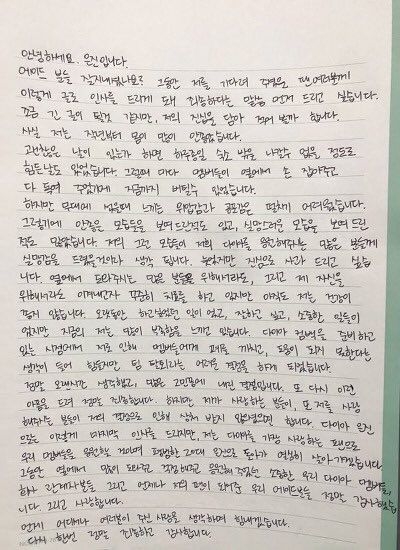 안녕하세요. 은진입니다.
에이드 분들 잘지내셨나요? 그동안 저를 기다려 주셨을 팬 여러분께
이렇게 글로 인사를 드리게 돼 죄송하다는 말씀 먼저 드리고 싶습니다.
조금 긴 글이 될것 같지만, 저의 진심을 담아 적어 볼까 합니다.
사실 저는, 작년부터 몸이 많이 안좋았습니다.
괜찮은 날이 있는가 하면 하루종일 숙소 밖을 나갈수 없을 정도로
힘든날도 있었습니다. 그럴때 마다 멤버들이 옆에서 손 잡아주고
다 독여 주었기에 지금까지 버틸수 있었습니다.
하지만 무대에 섰을때 느끼는 위압감과 공포감은 떨치기 어려웠습니다.
그렇기에 안좋은 모습들을 보여드린적도 있고, 실망스러운 모습을 보여 드린
적도 많았습니다. 저의 그런 모습이 저희 다이아를 응원해주시는 많은 분들께
실망감을 드렸을거이라 생각 됩니다. 늦었지만 진심으로 사과 드리고 싶습
니다. 옆에서 도와주시는 많은 분들을 위해서라도, 그리고 제 자신을
위해서라도 이겨내고자 꾸준히 치료를 하고 있지만 아직도 저는 건강이
좋지 않습니다. 오랫동안 하고싶었던 일이 었고, 잘하고 싶고, 소중한 일들이
었지만 지금의 저는 많이 부족함을 느끼고 있습니다. 다이아 컴백을 준비하고
있는 시점에서 저로 인해 멤버들에게 폐를 끼치고, 도움이 되지 못한다는
생각이 들어 힘들지만 팀 탈퇴라는 어려운 결정을 하게 되었습니다.
정말 오래시간 생각했고, 많은 고민끝에 내린 결정입니다. 또 다시 이런
아픔을 드려 정말 죄송합니다. 하지만 제가 사랑하는 분들이, 또 저를 사랑
해주시는 분들이 저의 결정으로 인해 상처 받지 않으셨으면 합니다. 다이아 은진
으로는 이렇게 마지막 인사를 드리지만, 저는 다이아를 가장 사랑하는 팬으로
우리 멤버들을 응원할 것이며 평범한 20대 은진으로 돌아가 열심히 살아가겠습니다.
그동안 옆에서 많이 도와주고 걱정해주고 응원해 주었던 소중한 우리 다이아 멤버들,
회사 관계자분들 그리고 언제나 저의 편이 되어준 우리 에이드분들 정말 감사했습
니다. 그리고 사랑합니다.
언제 어디에서나 여러분이 주신 사랑을 생각하며 힘내겠습니다.
다시 한번 정말 죄송하고 감사합니다.